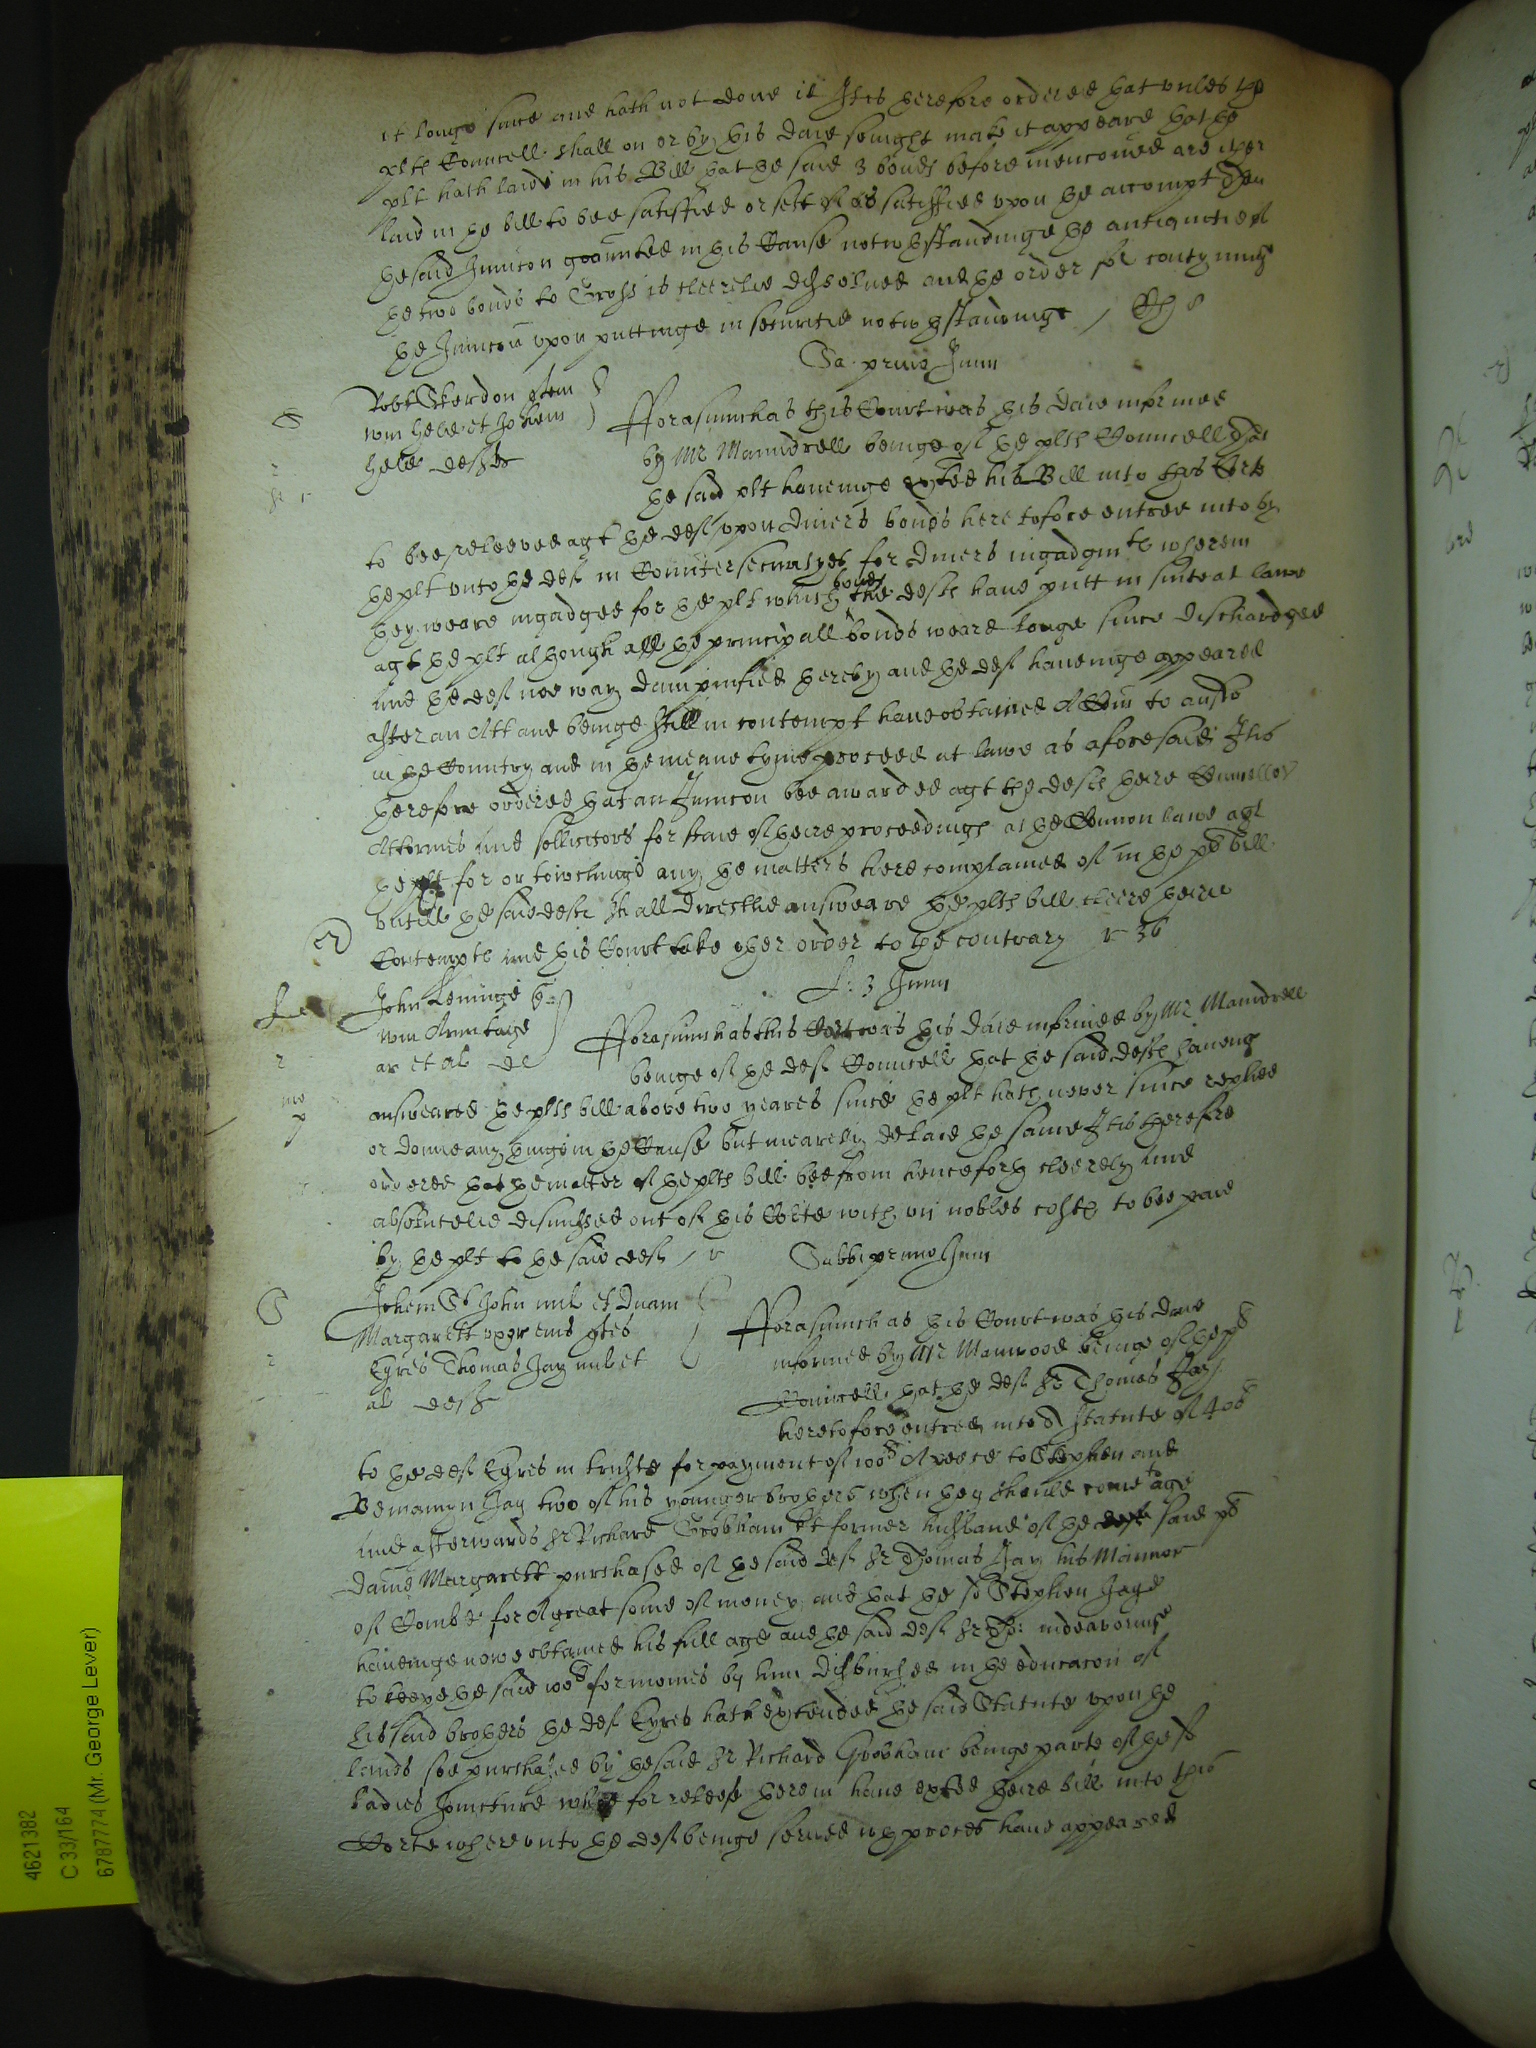 it longe since and hath not done it It is therefore ordered that unles the
plts Councell shall on or by this daie sevnight make it appeare that the
plt hath laide in his Bill that the said 3 bonds before mencioned are ether
laid in the bill to bee satisfied or sett as satisfied upon the accompt then
the said Iniuncon graunted in this Cause notwthstandinge the antiquitie of
the two bonds to Crosse is cleerelie dissolved and the order for contynuinge
the Iniuncon upon puttinge in securitie notwthstandinge /
Sa. primo Junii
Robt Sterdon plem
wm hele et Johem
hele defts
Fforasmuch as this Court was this daie informed
by Mr Maundrell beinge of the plts Councell that
the said plt haveinge exhited his Bill into this Corte
to bee releeved agt the deft upon divers bonds heretofore entred into by
the plt unto the deft in Countersecuritye for divers ingadgmts wherein
they weare ingadged for the plt which bonds the defts have putt in suite at lawe
agt the plt although all the principall bonds weare longe since dischardged
and the deft noe way dampnified thereby and the deft haveinge appeared
after an Att and beinge still in contempt have obtained A Com to answ
in the Country and in the meane tyme proceed at lawe as aforesaid It is
therefore ordered that an Iniuncon bee awarded agt the defts theire Councellor
Attornies and sollicitors for staie of theire proceedings at the Common lawe agt
the plt for or towchinge any the matters here complained of in the pts bill
untill the said defts shall directlie answeare the plts bill cleere theire
Contempts and this Court take other order to the contrary r 36
L: 3 Junii
John Leninge
wm Armitage
ar et al de
Fforasmuch as this Cort was this daie informed by Mr Maundrell
beinge of the deft Councell that the said defts haveing
answeared the plts bill above two yeares since the plt hath never since replied
or donne any thinge in the Cause but meerely delaie the same It is therefore
ordered that the matter of the plts bill bee from henceforth cleerely and
absolutelie dismissed out of this Corte with vij nobles costs to bee paid
by the plt to the said deft / r
Sabbi primo Junii
Johem St John mil et Dnam
Margarett uxor eius ptes
Eyres Thomas Jay mil et
al defts
Fforasmuch as this Court was this daie
informed by Mr Manwood beinge of the pts
Councell that the deft Sr Thomas Jay
heretofore entred into A statute of 400l
to the deft Eyres in truste for payment of 100l A peece to Stephen and
Beniamyn Jay two of his younger brothers when they should come to age
and afterwards Sr Richard Grobham former husband of the said pts
Dame Margarett purchased of the said deft Sr Thomas Jay his Mannor
of Combe for A great some of money and that the sd Stephen Jaye
haveinge nowe obtained his full age and the said deft Sr Tho: indeavoringe
to keepe the said 100l for monies by him disbursed in the educacon of
his said brothers the deft Eyres hath extended the said Statute upon the
lands soe purchased by the said Sr Richard Grobham beinge parte of the sd
Ladies Joincture whoe for releef herein have exhited theire bill into this
Corte whereunto the deft beinge served wth proces have appeared
4621382
C 33/164
6787774 (Mr. George Lever)